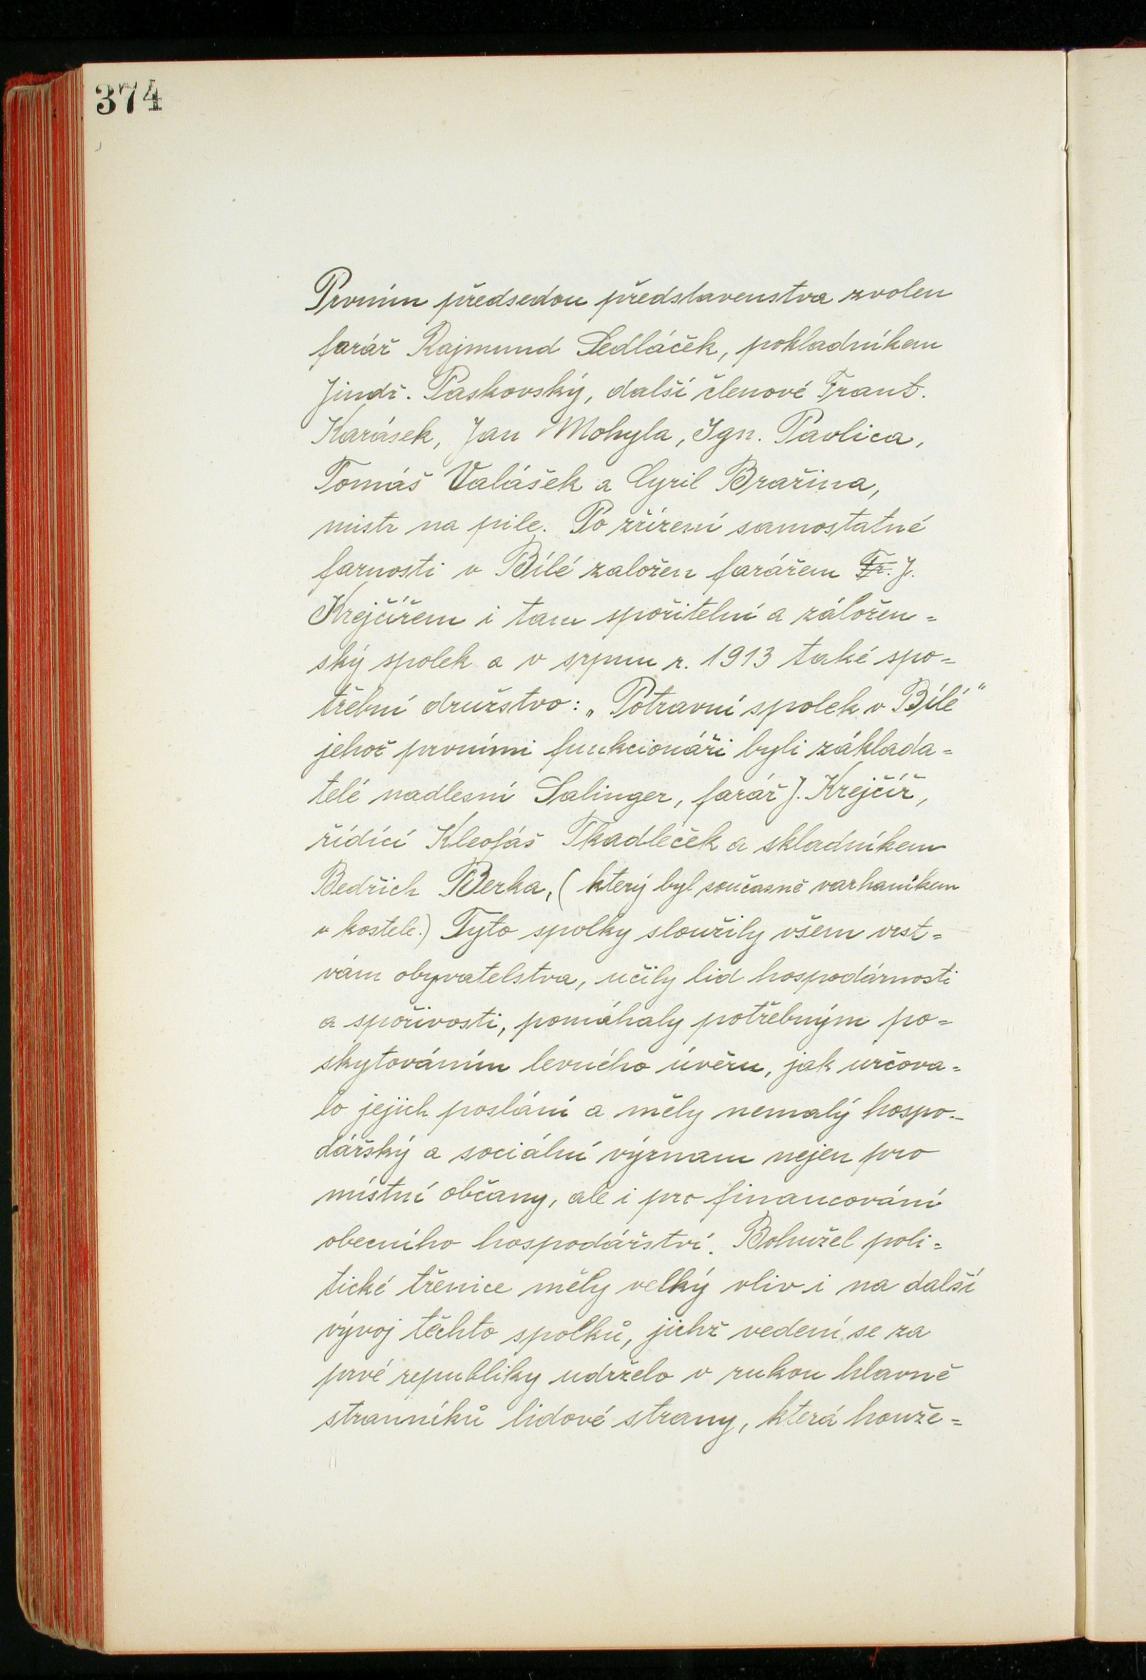 374
Prvním předsedou představenstva zvolen
farář Rajmund Sedláček, pokladníkem
Jindř. Paskovský, další členové Frant.
Karásek, Jan Mohyla, Ign. Pavlica,
Tomáš Valášek a Cyril Bražina,
mistr na pile. Po zřízení samostatné
farnosti v Bílé založen farářem Fr. J.
Krejčířem i tam spořitelní a záložen=
ský spolek a v srpnu r. 1913 také spo=
třební družstvo: „Potravní spolek v Bílé"
jehož prvními funkcionáři byli zaklada=
telé nadlesní Salinger, farář J. Krejčíř,
řídící Kleofáš Tkadleček a skladníkem
Bedřich Berka, (který byl současně varhaníkem
v kostele.) Tyto spolky sloužily všem vrst=
vám obyvatelstva, učily lid hospodárnosti
a spořivosti, pomáhaly potřebným po=
skytováním levného úvěru, jak určova=
lo jejich poslání a měly nemalý hospo=
dářský a sociální význam nejen pro
místní občany, ale i pro financování
obecního hospodářství. Bohužel poli=
tické třenice měly velký vliv i na další
vývoj těchto spolků, jichž vedení se za
prvé republiky udrželo v rukou hlavně
stranníků lidové strany, která houže=